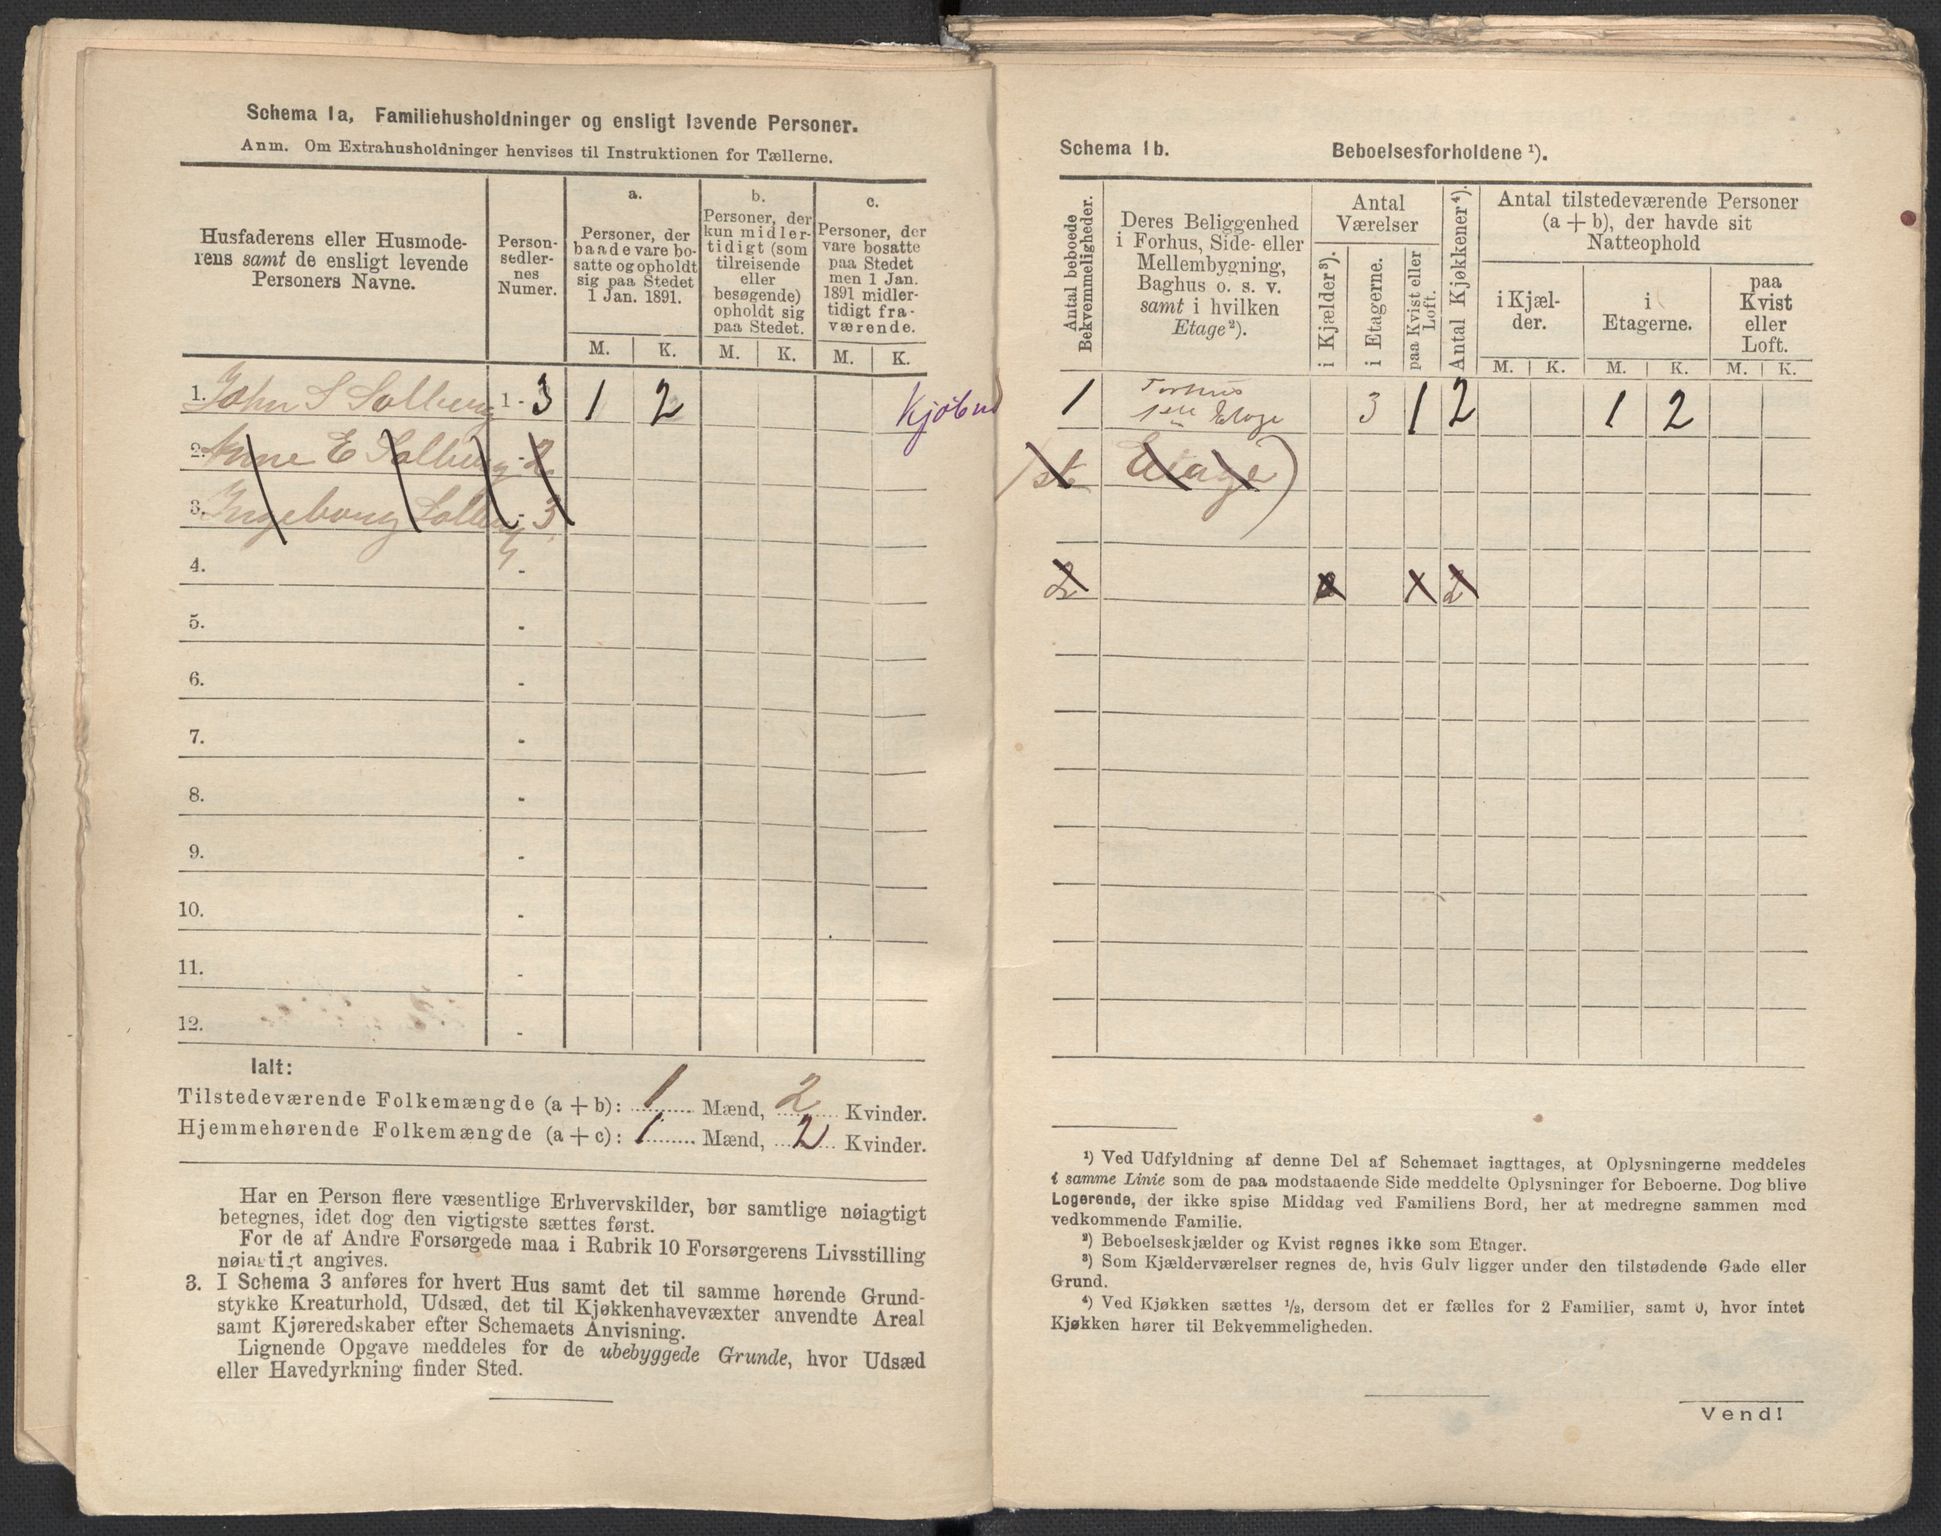 Schema 1a, Familiehusholdninger og ensligt levende Personer.
Anm. Om Extrahusholdninger henvises til Instruktionen for Tællerne.
Husfaderens eller Husmode-
rens samt de ensligt levende
Personers Navne.
Person-
sedler-
nes
Numer.
a.
Personer, der
baade vare bo-
satte og opholdt
sig paa Stedet
1 Jan. 1891.
b.
Personer, der
kun midler-
tidigt (som
tilreisende
eller
besøgende)
opholdt sig
paa Stedet.
c.
Personer, der
vare bosatte
paa Stedet
men 1 Jan.
1891 midler-
tidigt fra-
værende.
M. K. M. K. M. K.
1. John S Solberg 1 - 3 1 2 Kjøbnd
2. Anne E Solberg - 2
3. Ingeborg Solberg - 3
4. -
5. -
6. -
7. -
8. -
9. -
10. -
11. -
12. -
Ialt:
Tilstedeværende Folkemængde (a + b): 1 Mænd, 2 Kvinder.
Hjemmehørende Folkemængde (a + c): 1 Mænd, 2 Kvinder.
Har en Person flere væsentlige Erhvervskilder, bør samtlige nøiagtigt
betegnes, idet dog den vigtigste sættes først.
For de af Andre Forsørgede maa i Rubrik 10 Forsørgerens Livsstilling
nøiagtigt angives.
3. I Schema 3 anføres for hvert Hus samt det til samme hørende Grund-
stykke Kreaturhold, Udsæd, det til Kjøkkenhavevæxter anvendte Areal
samt Kjøreredskaber efter Schemaets Anvisning.
Lignende Opgave meddeles for de ubebyggede Grunde, hvor Udsæd
eller Havedyrkning finder Sted.
Schema 1b. Beboelsesforholdene ¹).
Antal beboede
Bekvemmeligheder.
Deres Beliggenhed
i Forhus, Side- eller
Mellembygning,
Baghus o. s. v.
samt i hvilken
Etage ²).
Antal
Værelser
i Kjælder ³).
i Etagerne.
paa Kvist eller
Loft.
Antal Kjøkkener ⁴).
Antal tilstedeværende Personer
(a + b), der havde sit
Natteophold
i Kjæl-
der.
i
Etagerne.
paa
Kvist
eller
Loft.
M. K. M. K. M. K.
1 Forhus
1ste Etage 3 1 2 1 2
1st Etage)
2 2 1 2
¹) Ved Udfyldning af denne Del af Schemaet iagttages, at Oplysningerne meddeles
i samme Linie som de paa modstaaende Side meddelte Oplysninger for Beboerne. Dog blive
Logerende, der ikke spise Middag ved Familiens Bord, her at medregne sammen med
vedkommende Familie.
²) Beboelseskjælder og Kvist regnes ikke som Etager.
³) Som Kjælderværelser regnes de, hvis Gulv ligger under den tilstødende Gade eller
Grund.
⁴) Ved Kjøkken sættes ½, dersom det er fælles for 2 Familier, samt 0, hvor intet
Kjøkken hører til Bekvemmeligheden.
Vend!